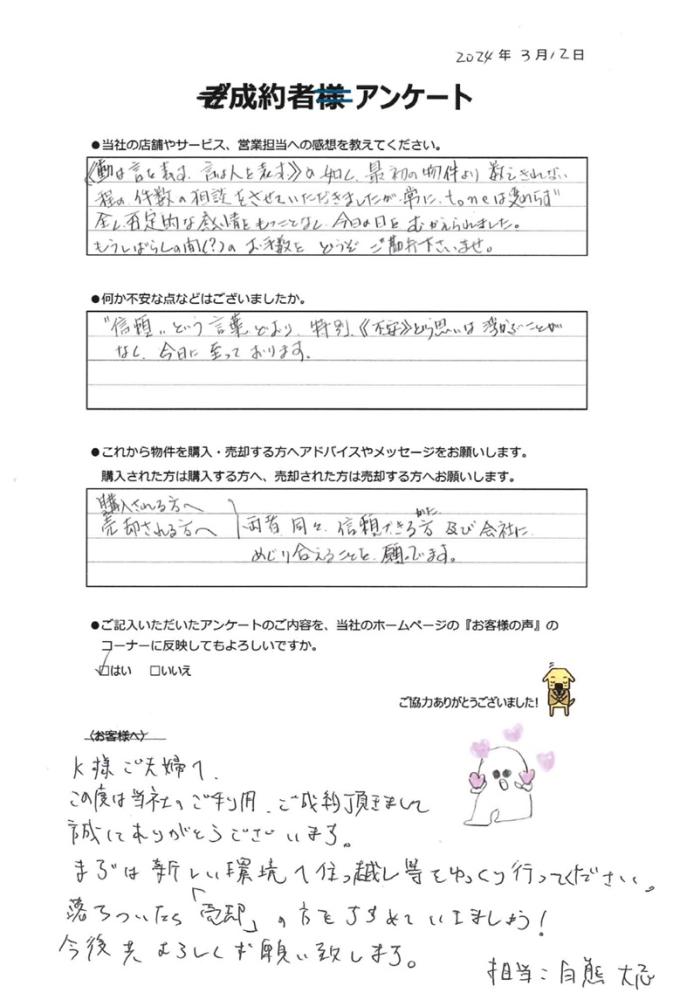 2024年3月12日
ご成約者様アンケート
●当社の店舗やサービス、営業担当への感想を教えてください。
《動は言を表す、言は人を表す》の如し、最初の物件より数えきれない
程の件数の相談をさせていただきましたが、常に、toneは変わらず
全く否定的な感情をもつことなく、今日の日をむかえられました。
もうしばらくの間(?)のお手数をどうぞご勘弁下さいませ。
●何か不安な点などはございましたか。
"信頼"という言葉どおり、特別、《不安》という思いは浮かぶことが
なく、今日に至っております。
●これから物件を購入・売却する方へアドバイスやメッセージをお願いします。
購入された方は購入する方へ、売却された方は売却する方へお願いします。
購入される方へ
売却される方へ 両者、同々、信頼できる方(かた)及び会社に
めぐり合えることを、願っています。
●ご記入いただいたアンケートのご内容を、当社のホームページの『お客様の声』の
コーナーに反映してもよろしいですか。
☑はい □いいえ
ご協力ありがとうございました!
〈お客様へ〉
K様ご夫婦へ
この度は当社のご利用、ご成約頂きまして
誠にありがとうございます。
まずは新しい環境へ引っ越し等をゆっくり行ってください。
落ちついたら「売却」の方をすすめていきましょう!
今後共よろしくお願い致します。
担当:白熊 大